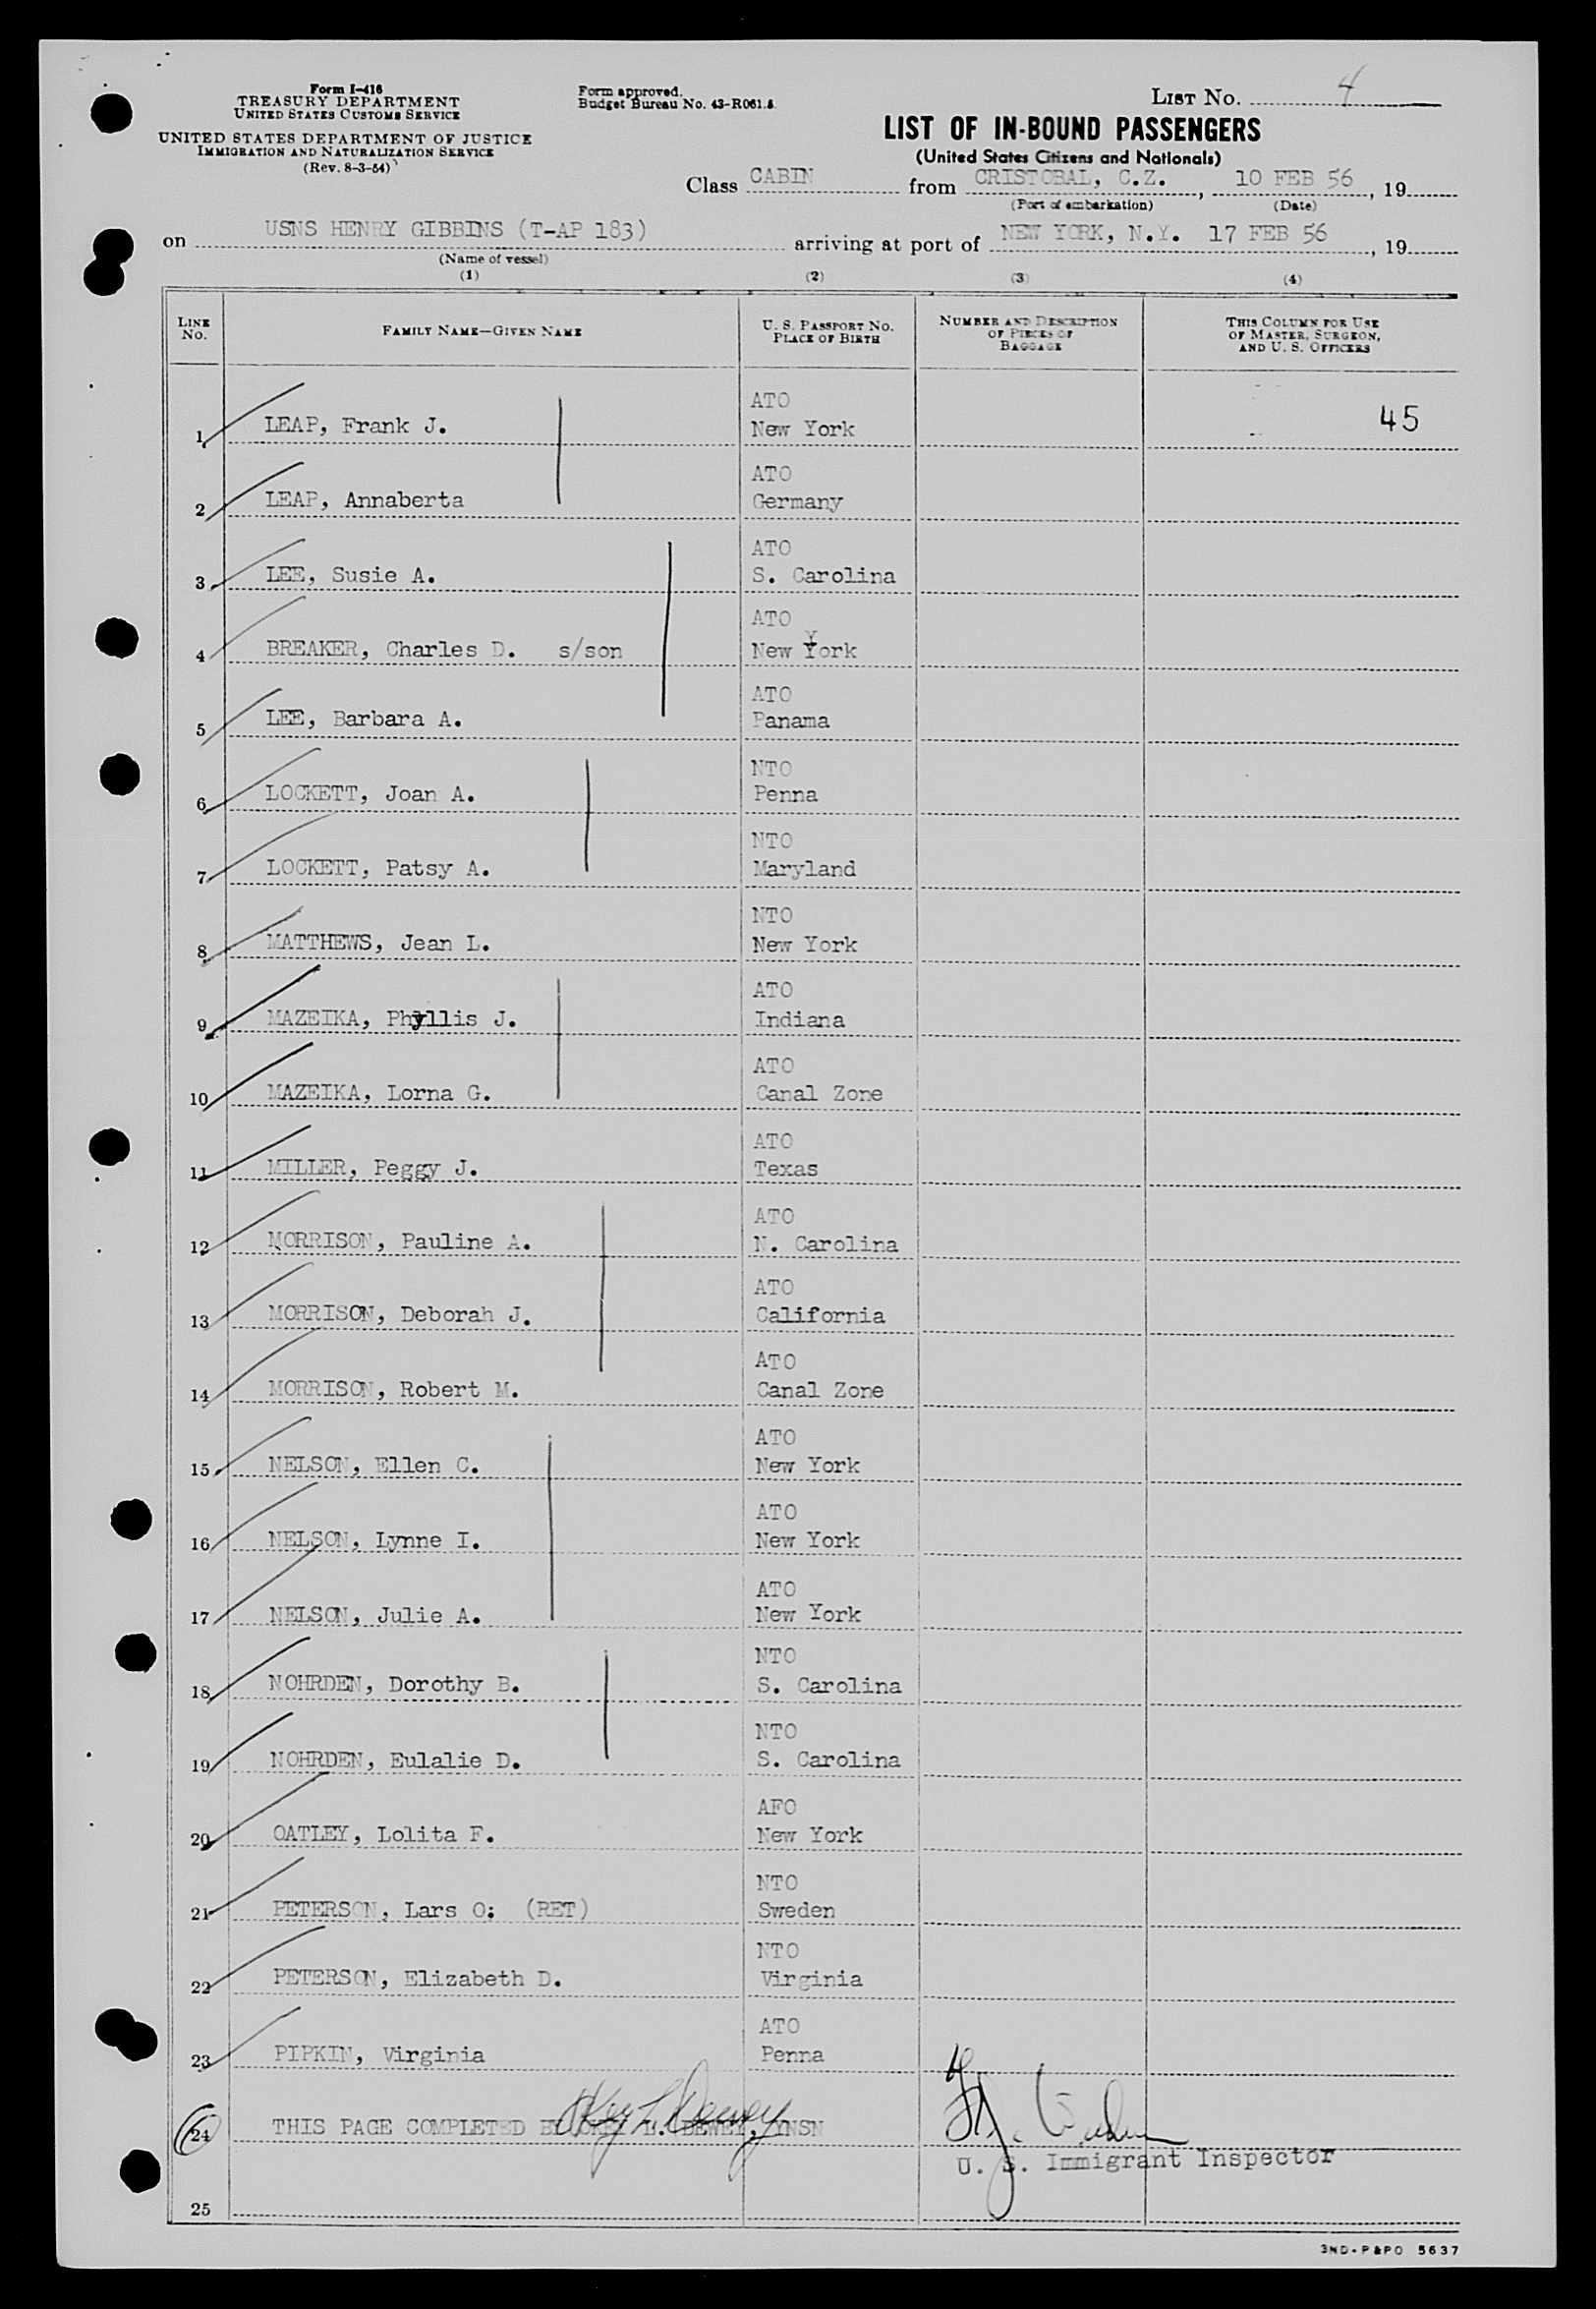 Form I-416
TREASURY DEPARTMENT
UNITED STATES CUSTOMS SERVICE
UNITED STATES DEPARTMENT OF JUSTICE
IMMIGRATION AND NATURALIZATION SERVICE
(Rev. 8-3-54)
Form approved.
Budget Bureau No. 43-R061.8
LIST No. 4
LIST OF IN-BOUND PASSENGERS
(United States Citizens and Nationals)
Class CABIN from CRISTOBAL, C.Z. , 10 FEB 56 , 19
(Port of embarkation) (Date)
on USNS HENRY GIBBINS (T-AP 183) arriving at port of NEW YORK, N.Y. 17 FEB 56 , 19
(Name of vessel)
(1) (2) (3) (4)
LINE No. FAMILY NAME—GIVEN NAME U. S. PASSPORT NO. PLACE OF BIRTH NUMBER AND DESCRIPTION OF PIECES OF BAGGAGE THIS COLUMN FOR USE OF MASTER, SURGEON, AND U. S. OFFICERS
ATO
1 LEAP, Frank J. New York 45
ATO
2 LEAP, Annaberta Germany
ATO
3 LEE, Susie A. S. Carolina
ATO
4 BREAKER, Charles D. s/son New York
ATO
5 LEE, Barbara A. Panama
NTO
6 LOCKETT, Joan A. Penna
NTO
7 LOCKETT, Patsy A. Maryland
NTO
8 MATTHEWS, Jean L. New York
ATO
9 MAZEIKA, Phyllis J. Indiana
ATO
10 MAZEIKA, Lorna G. Canal Zone
ATO
11 MILLER, Peggy J. Texas
ATO
12 MORRISON, Pauline A. N. Carolina
ATO
13 MORRISON, Deborah J. California
ATO
14 MORRISON, Robert M. Canal Zone
ATO
15 NELSON, Ellen C. New York
ATO
16 NELSON, Lynne I. New York
ATO
17 NELSON, Julie A. New York
NTO
18 NOHRDEN, Dorothy B. S. Carolina
NTO
19 NOHRDEN, Eulalie D. S. Carolina
AFO
20 OATLEY, Lolita F. New York
NTO
21 PETERSON, Lars O: (RET) Sweden
NTO
22 PETERSON, Elizabeth D. Virginia
ATO
23 PIPKIN, Virginia Penna
24 THIS PAGE COMPLETED BY L. DEWEY, YNSN
U. S. Immigrant Inspector
25
3ND-P&PO 5637